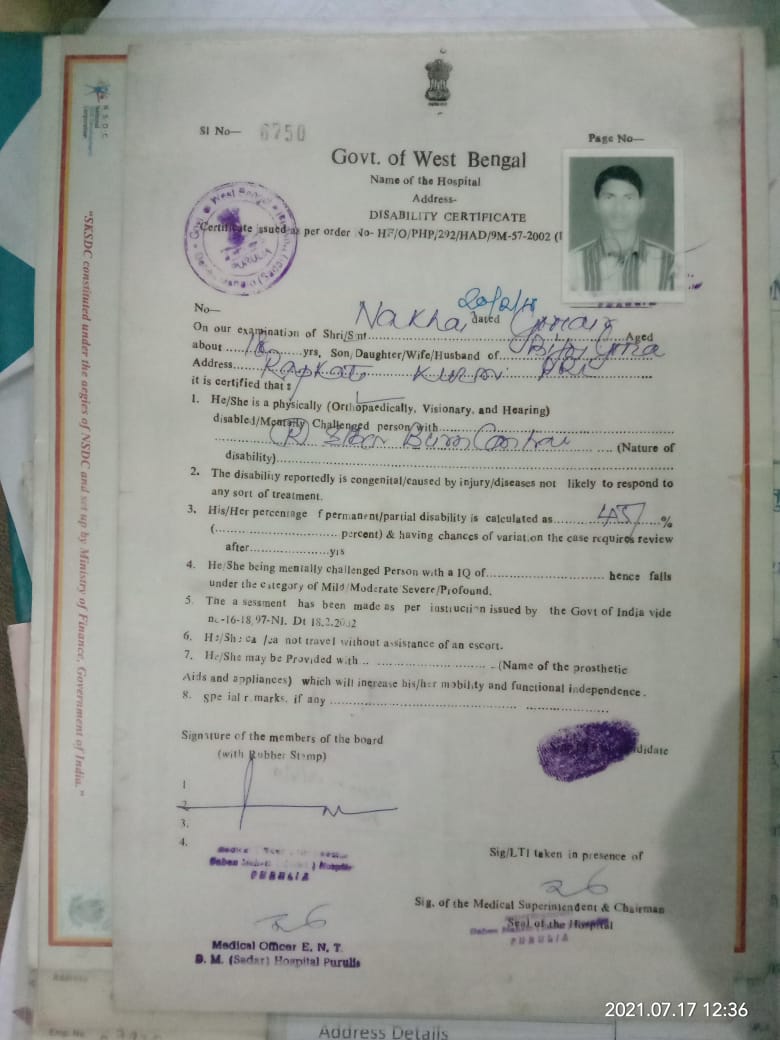 Sl No— 6750
Page No—
Govt. of West Bengal
Name of the Hospital
Address-
DISABILITY CERTIFICATE
Certificate issued as per order No- HF/O/PHP/292/HAD/9M-57-2002
No— dated
On our examination of Shri/Smt. Aged
about yrs, Son/Daughter/Wife/Husband of
Address
it is certified that:
1. He/She is a physically (Orthopaedically, Visionary, and Hearing)
disabled/Mentally Challenged person with
(R) (Nature of
disability)
2. The disability reportedly is congenital/caused by injury/diseases not likely to respond to
any sort of treatment.
3. His/Her percentage f permanent/partial disability is calculated as 45 %
( percent) & having chances of variation the case requires review
after yis
4. He/She being mentally challenged Person with a IQ of hence falls
under the category of Mild/Moderate Severe/Profound.
5. The a sessment has been made as per instruction issued by the Govt of India vide
no.-16-18,97-NI. Dt 18.2.2002
6. He/She ca /ca not travel without assistance of an escort.
7. He/She may be Provided with .. (Name of the prosthetic
Aids and appliances) which will increase his/her mobility and functional independence.
8. spe ial r marks, if any
Signature of the members of the board
(with Rubber Stamp)
1
2.
3.
4.
PURULIA
Sig/LTI taken in presence of
Sig. of the Medical Superintendent & Chairman
Seal of the Hospital
PURULIA
Medical Officer E. N. T.
D. M. (Sadar) Hospital Purulia
"SKSDC constituted under the aegies of NSDC and set up by Ministry of Finance, Government of India."
NSDC
Address Details
2021.07.17 12:36